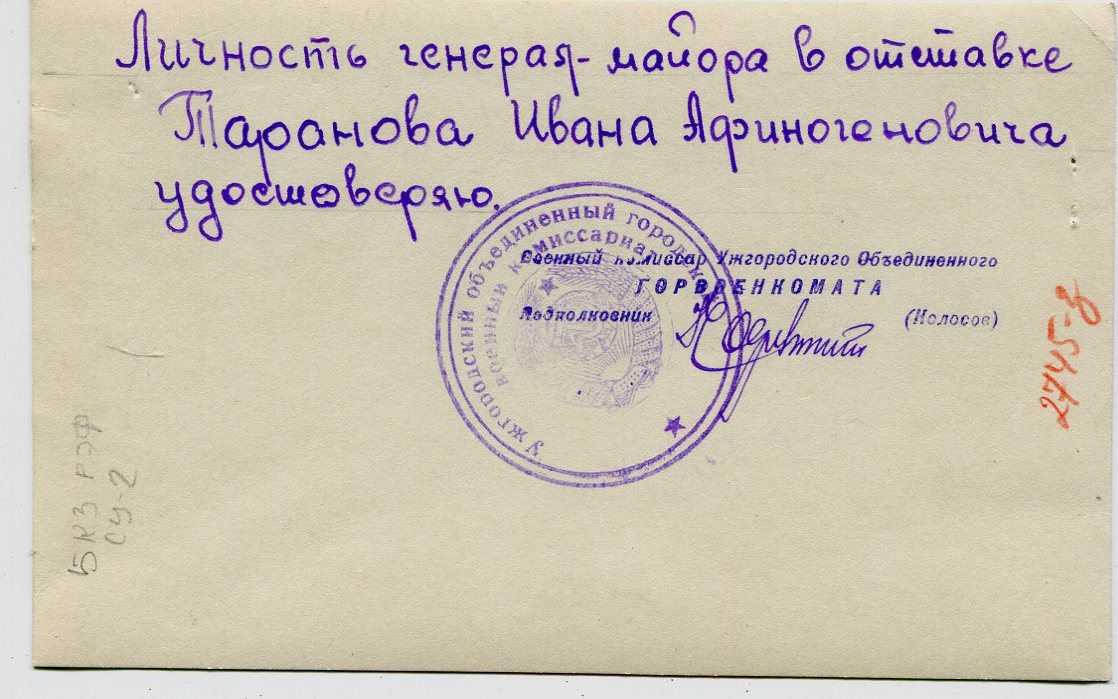 Личность генерал-майора в отставке
Таранова Ивана Афиногеновича
удостоверяю.
Ужгородский объединенный городской
военный комиссариат
Военный комиссар Ужгородского Объединенного
ГОРВОЕНКОМАТА
Подполковник (Колосов)
2745-з
БКЗ РЭФ
СУ-2